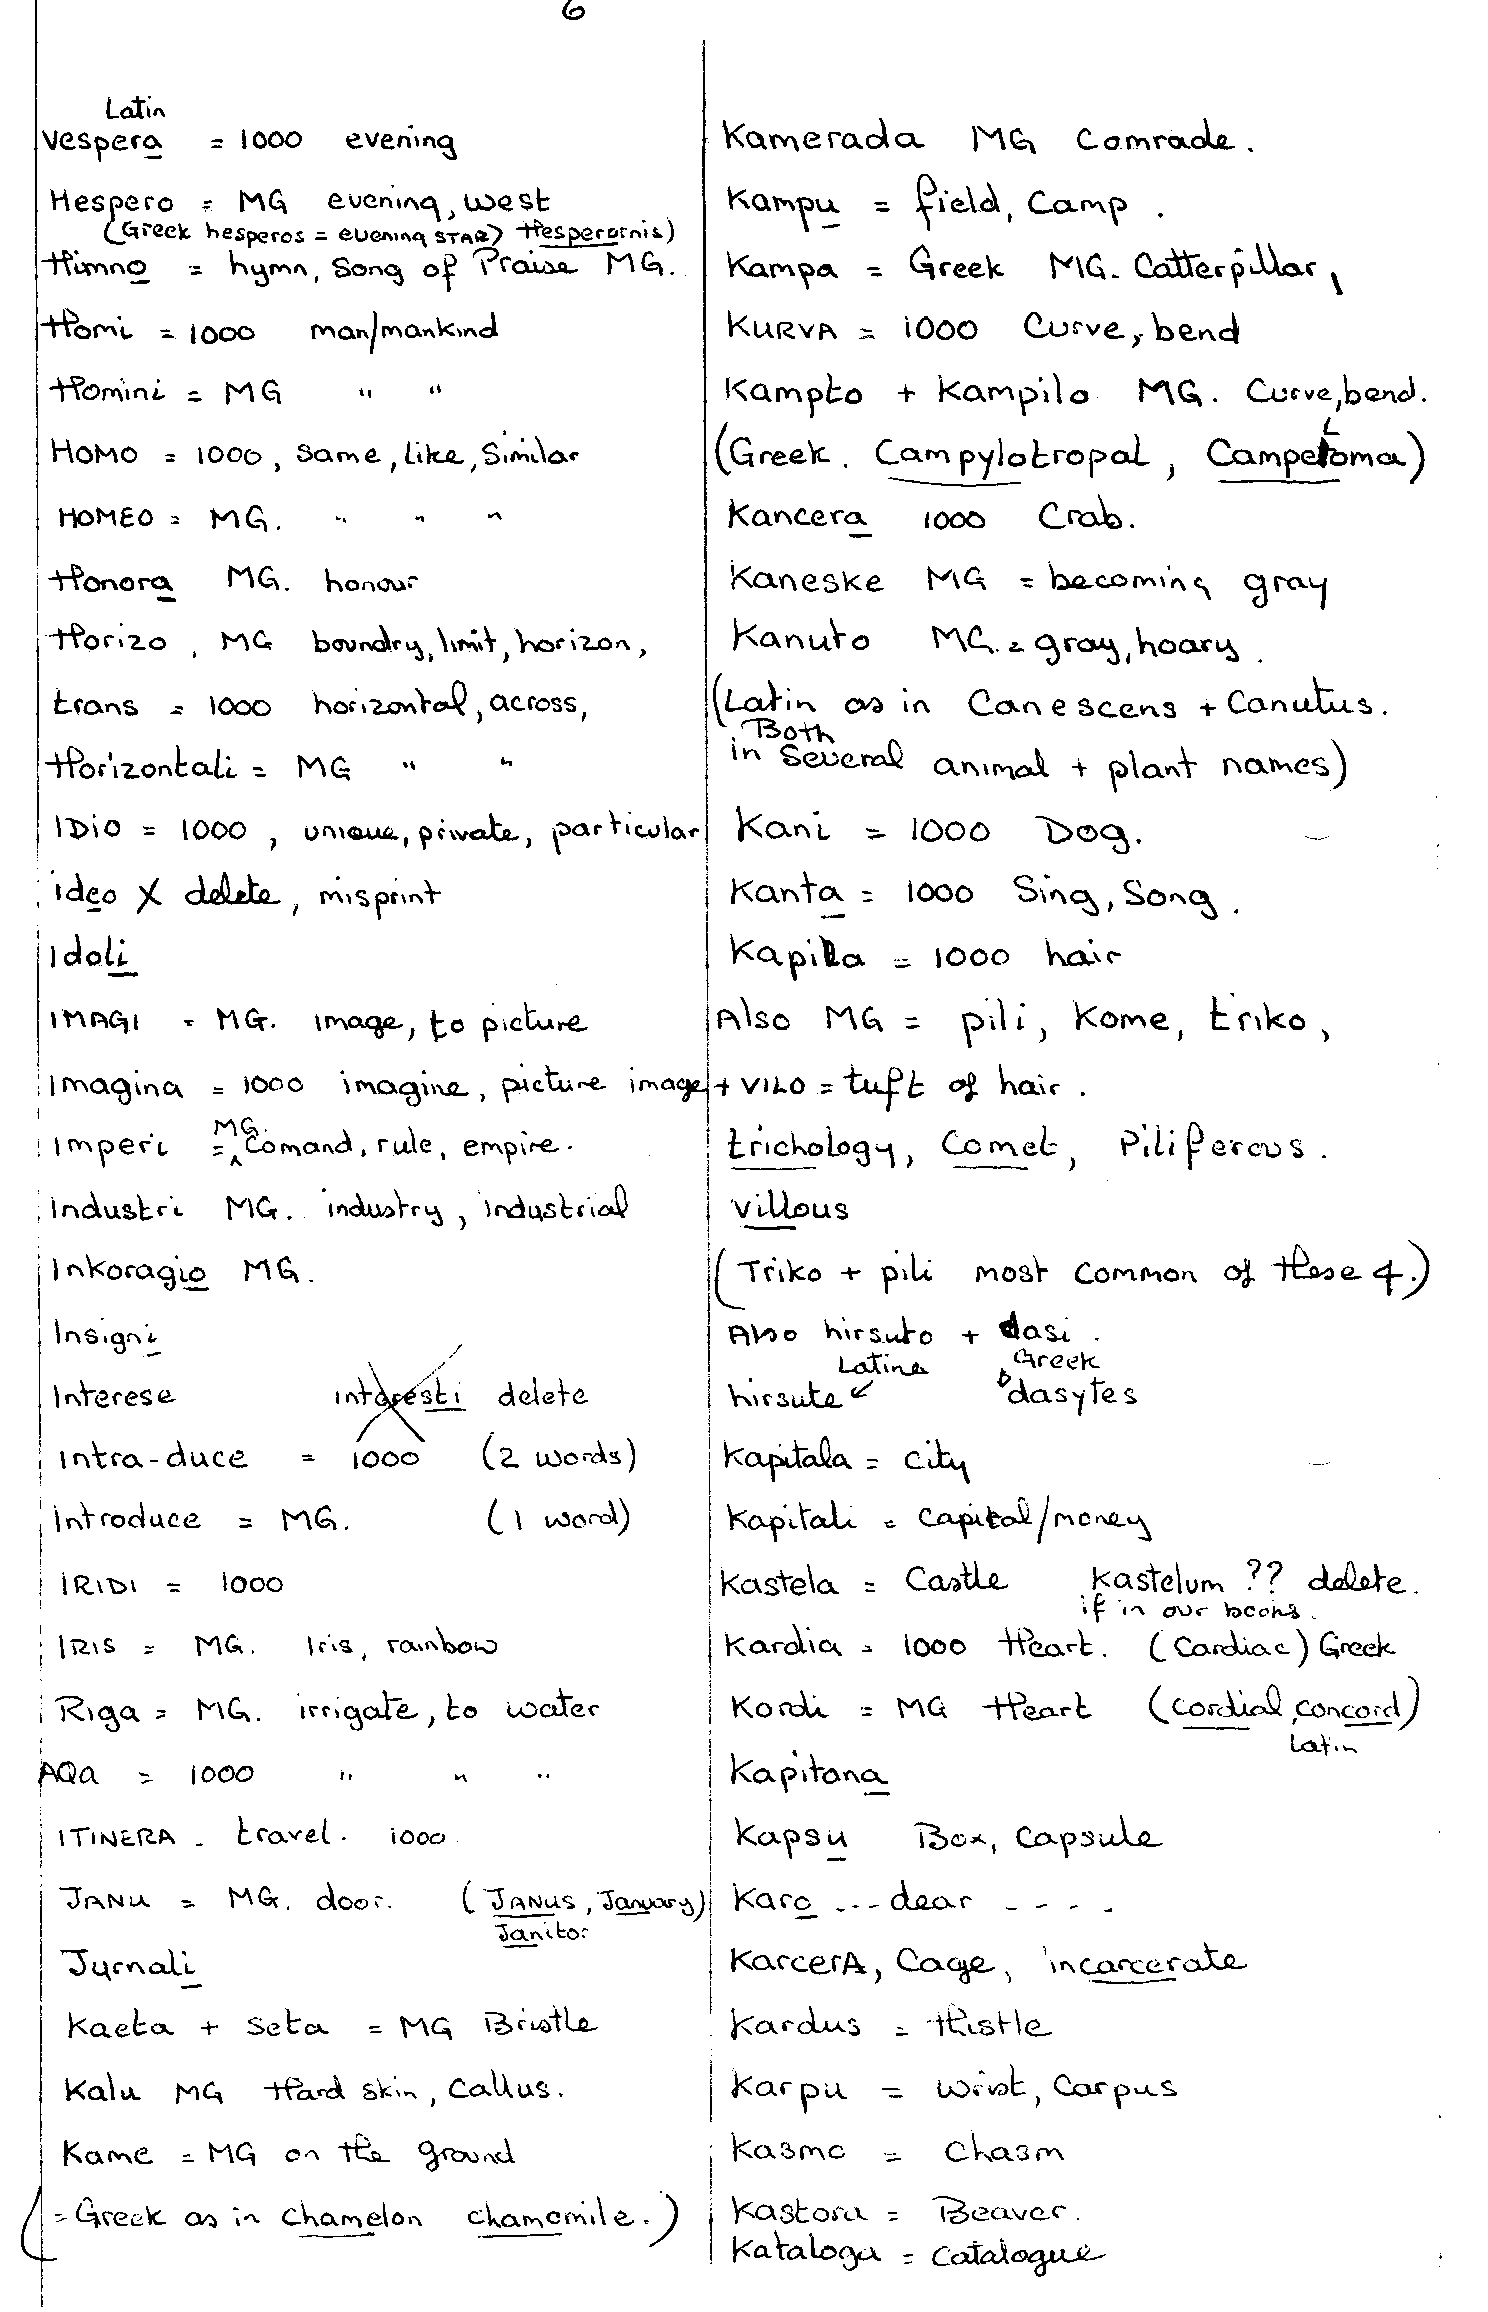 6
Latin
Vespera = 1000 evening
Hespero = MG evening, west
(Greek hesperos = evening STAR) Hesperornis)
Himno = hymn, Song of Praise MG.
Homi = 1000 man/mankind
Homini = MG " "
HOMO = 1000, same, like, similar
HOMEO = MG. " " "
Honora MG. honour
Horizo, MG boundry, limit, horizon,
trans = 1000 horizontal, across,
Horizontali = MG " "
IDIO = 1000, unique, private, particular
ideo X delete, misprint
Idoli
IMAGI = MG. image, to picture
Imagina = 1000 imagine, picture image
Imperi = MG. Comand, rule, empire.
Industri MG. industry, industrial
Inkoragio MG.
Insigni
Interese interesti delete
Intra-duce = 1000 (2 words)
Introduce = MG. (1 word)
IRIDI = 1000
IRIS = MG. Iris, rainbow
Riga = MG. irrigate, to water
AQa = 1000 " " "
ITINERA - travel. 1000
JANU = MG. door. (JANUS, January)
Janitor
Jurnali
Kaeta + Seta = MG Bristle
Kalu MG Hard skin, Callus.
Kame = MG on the ground
(= Greek as in Chamelon chamomile.)
Kamerada MG Comrade.
Kampu = field, Camp.
Kampa = Greek MG. Catterpillar,
KURVA = 1000 Curve, bend
Kampto + Kampilo MG. Curve, bend.
(Greek. Campylotropal, Campetoma)
Kancera 1000 Crab.
Kaneske MG = becoming gray
Kanuto MG. = gray, hoary.
(Latin as in Canescens + Canutus.
Both
in Several animal + plant names)
Kani = 1000 Dog.
Kanta = 1000 Sing, Song.
Kapila = 1000 hair
Also MG = pili, Kome, triko,
+ VILO = tuft of hair.
trichology, Comet, Piliferous.
villous
(Triko + pili most common of these 4.)
Also hirsuto + dasi.
Latine Greek
hirsute dasytes
Kapitala = city
Kapitali = capital/money
Kastela = Castle Kastelum ?? delete.
if in our books.
Kardia = 1000 Heart. (Cardiac) Greek
Kordi = MG Heart (Cordial, concord)
Latin
Kapitana
Kapsu Box, Capsule
Karo ... dear - - - -
KarcerA, Cage, incarcerate
Kardus = thistle
Karpu = Wrist, Carpus
Kasmo = Chasm
Kastoru = Beaver.
Katalogu = Catalogue